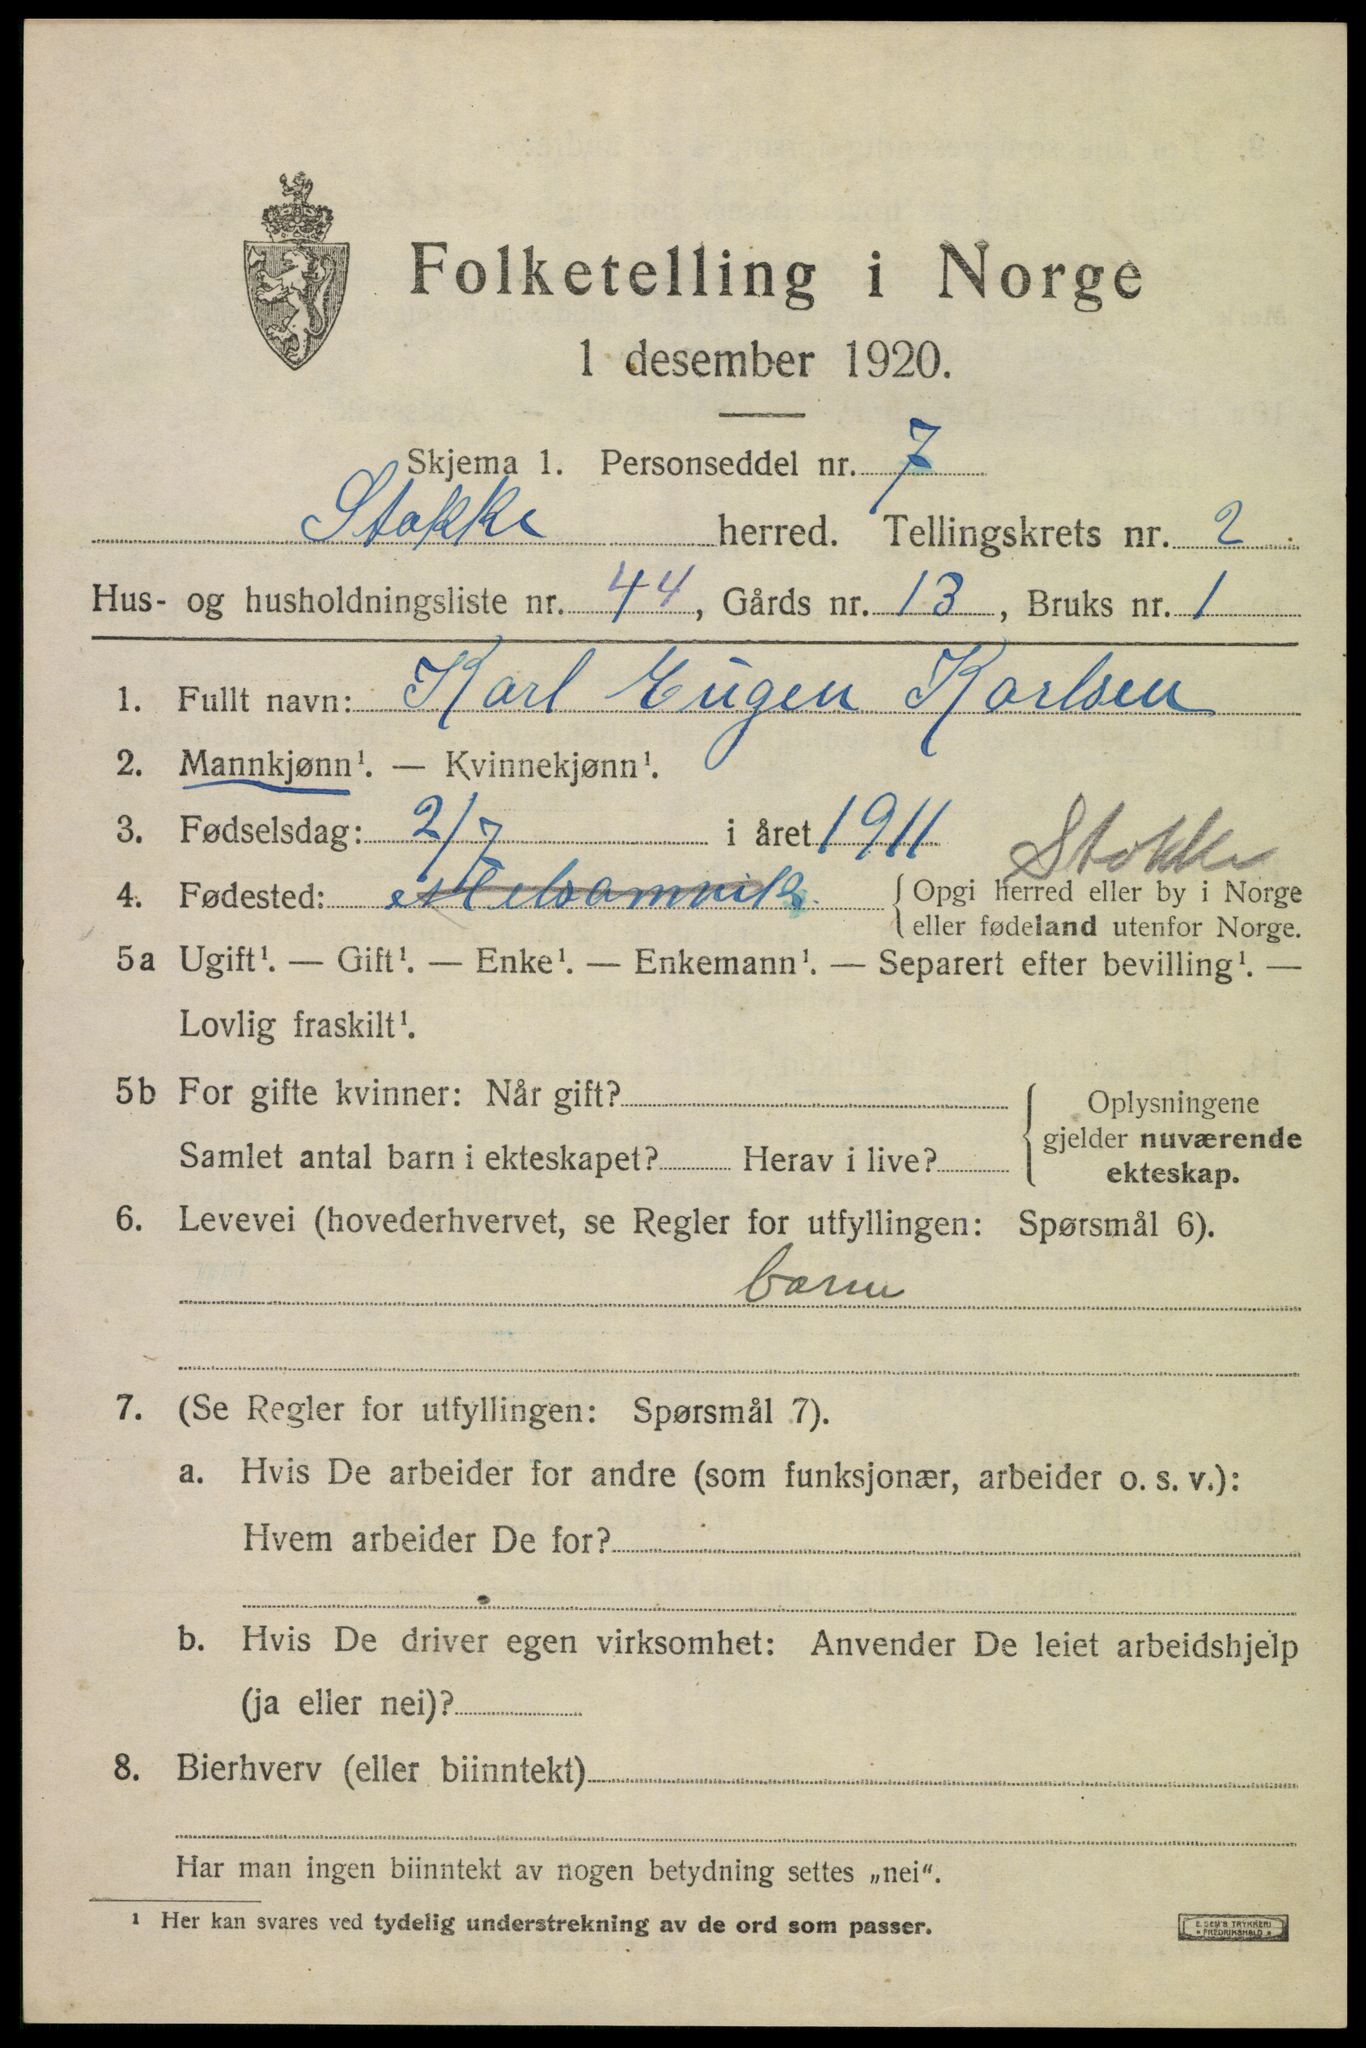 Folketelling i Norge
1 desember 1920.
Skjema 1. Personseddel nr. 7
Stokke herred. Tellingskrets nr. 2
Hus- og husholdningsliste nr. 44, Gårds nr. 13, Bruks nr. 1
1. Fullt navn: Karl Eugen Karlsen
2. Mannkjønn¹. — Kvinnekjønn¹.
3. Fødselsdag: 2/7 i året 1911 Stokke
4. Fødested: Melsomvik. { Opgi herred eller by i Norge
eller fødeland utenfor Norge.
5a Ugift¹. — Gift¹. — Enke¹. — Enkemann¹. — Separert efter bevilling¹. —
Lovlig fraskilt¹.
5b For gifte kvinner: Når gift?
Samlet antal barn i ekteskapet? Herav i live?
Oplysningene
gjelder nuværende
ekteskap.
6. Levevei (hovederhvervet, se Regler for utfyllingen: Spørsmål 6).
barn
7. (Se Regler for utfyllingen: Spørsmål 7).
a. Hvis De arbeider for andre (som funksjonær, arbeider o. s. v.):
Hvem arbeider De for?
b. Hvis De driver egen virksomhet: Anvender De leiet arbeidshjelp
(ja eller nei)?
8. Bierhverv (eller biinntekt)
Har man ingen biinntekt av nogen betydning settes „nei“.
¹ Her kan svares ved tydelig understrekning av de ord som passer.
E. SEM'S TRYKKERI
FREDRIKSHALD